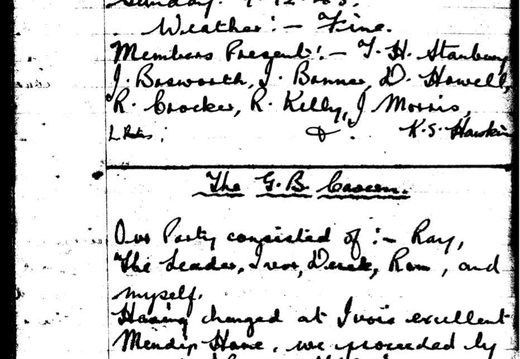 Weather:- Fine.
Members Present:- T. H. Stanbury
J. Bosworth, J. Bonner, D. Howell,
R. Crocker, R. Kelly, J Morris,
& K.S. Hawkins
The G.B. Cavern.
Our Party consisted of:- Ray,
The Leader, Ivor, Derek, Ron, and
myself.
Having changed at Ivor's excellent
Mendip Home, we proceeded by